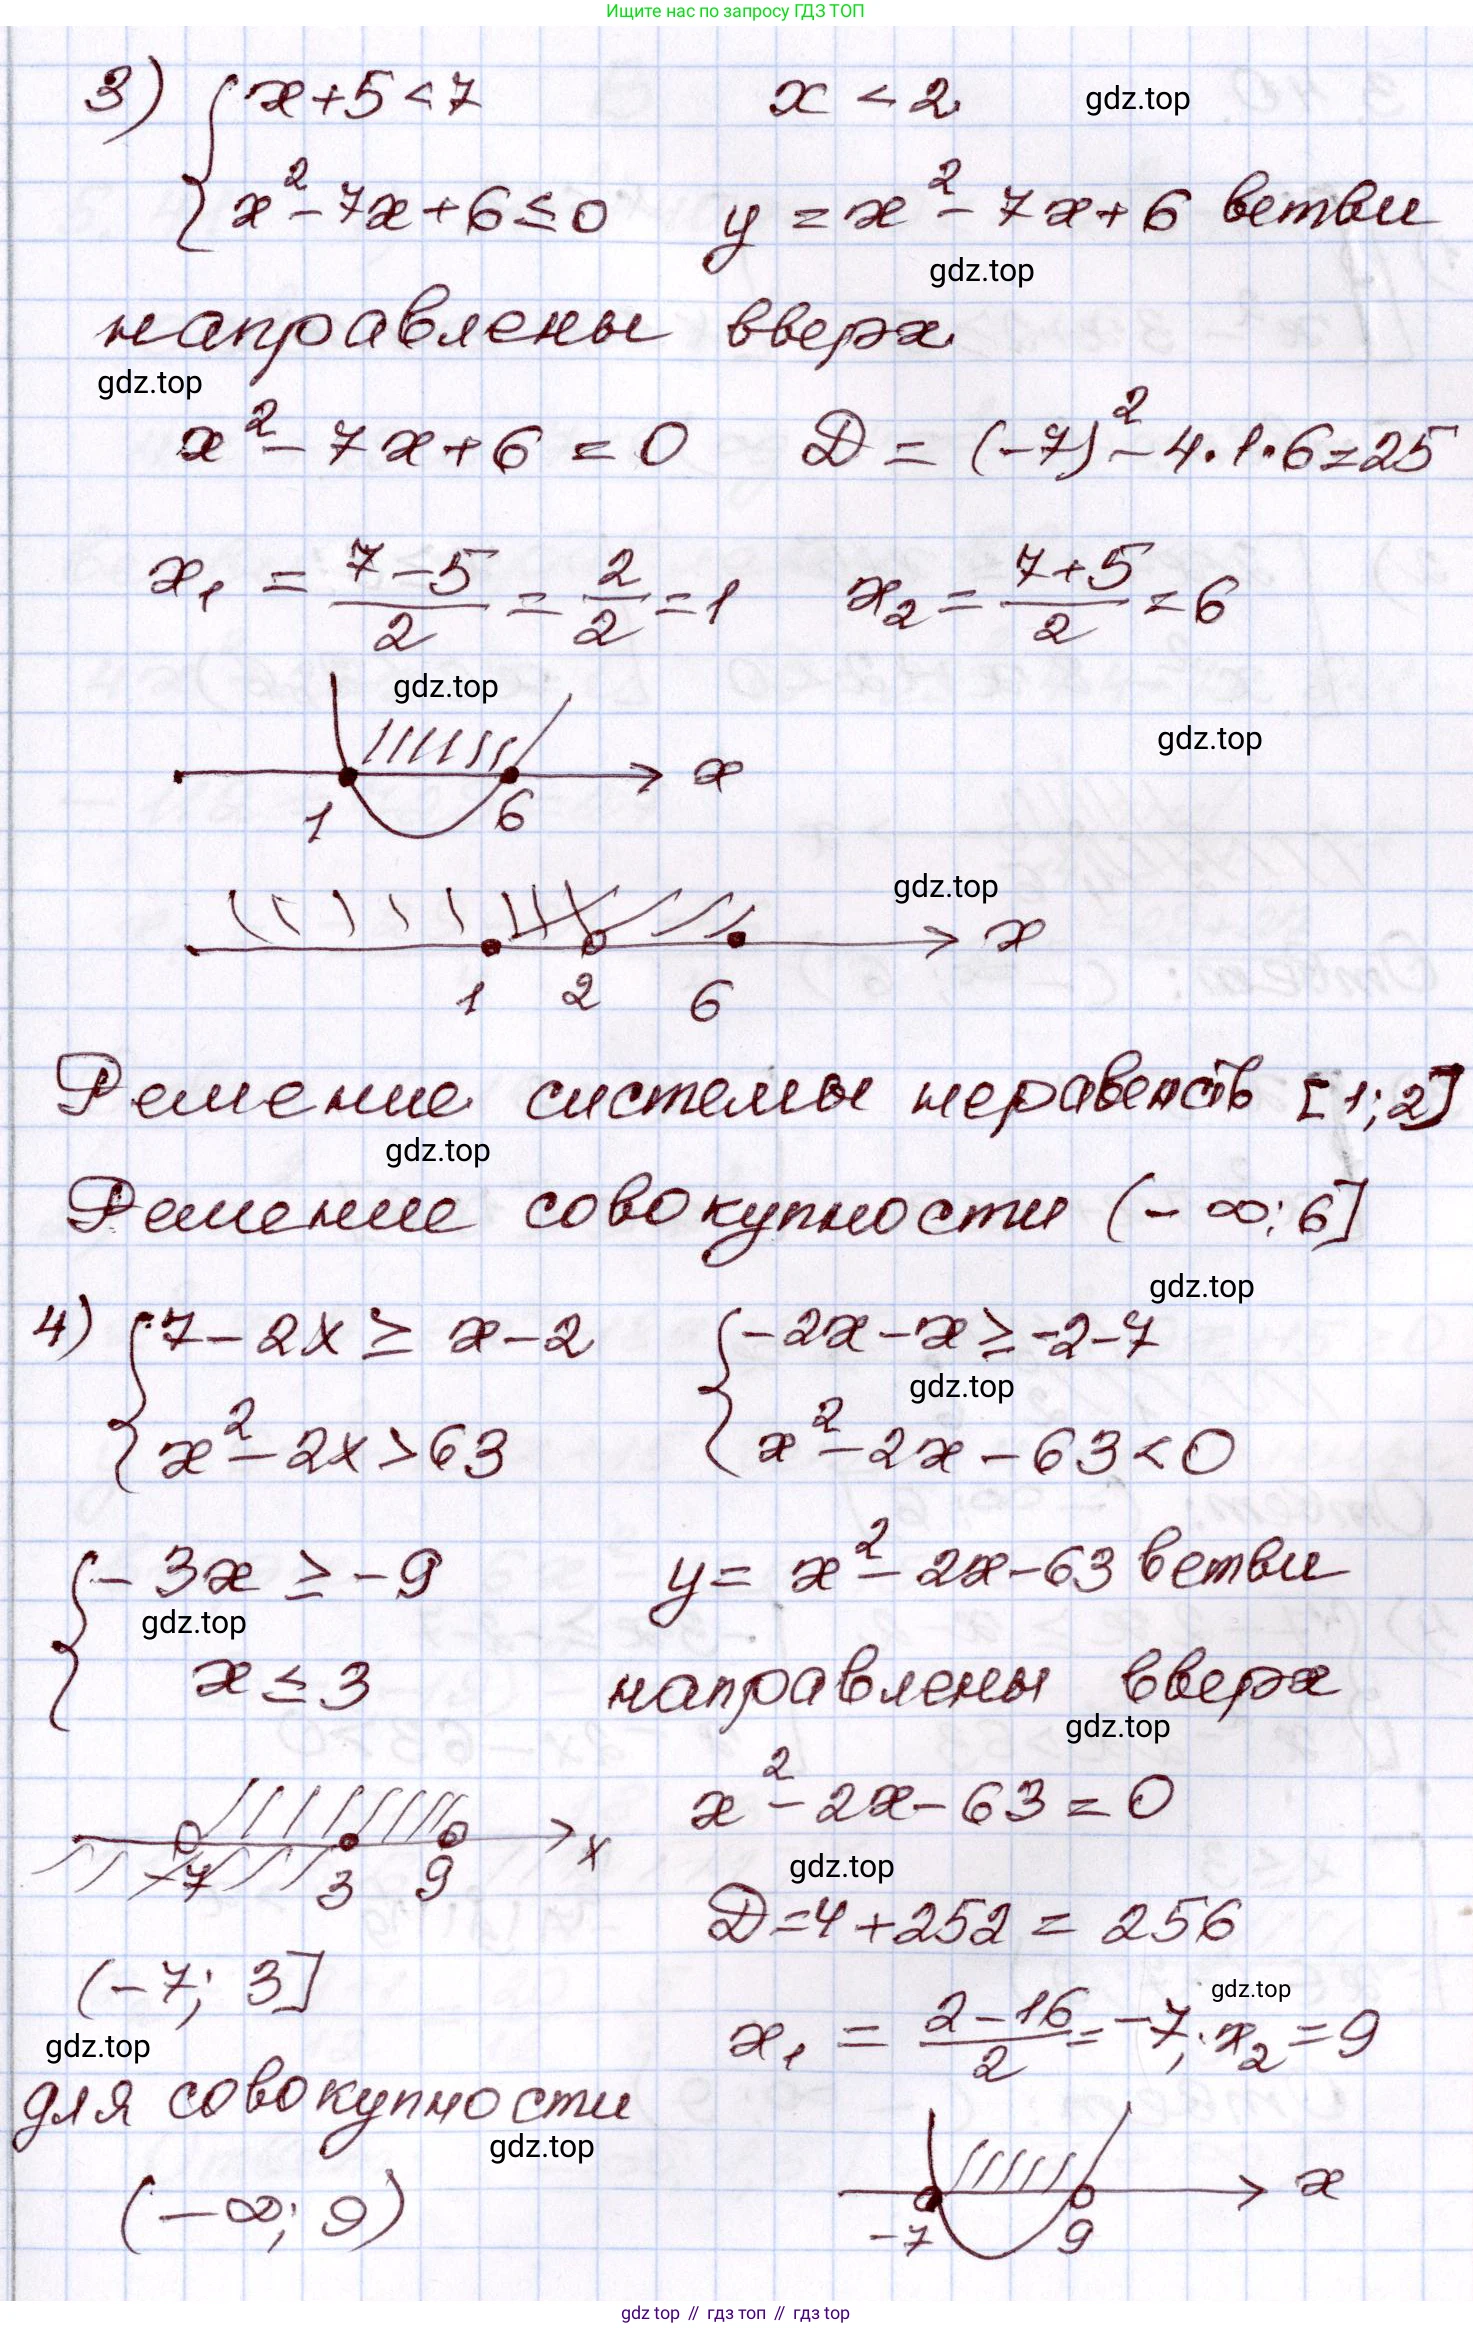 Ищите нас по запросу ГДЗ ТОП
3) { x + 5 < 7        x < 2        gdz.top
{ x² - 7x + 6 ≤ 0        y = x² - 7x + 6 ветви
gdz.top
направлены вверх
gdz.top
x² - 7x + 6 = 0        D = (-7)² - 4·1·6 = 25
x₁ = (7-5)/2 = 2/2 = 1        x₂ = (7+5)/2 = 6
gdz.top
gdz.top
x
1        6
gdz.top
x
1    2    6
Решение системы неравенств [1; 2]
gdz.top
Решение совокупности (-∞; 6]
gdz.top
4) { 7 - 2x ≥ x - 2        { -2x - x ≥ -2 - 7
gdz.top
{ x² - 2x > 63        { x² - 2x - 63 < 0
{ -3x ≥ -9        y = x² - 2x - 63 ветви
gdz.top
{ x ≤ 3        направлены вверх
gdz.top
x² - 2x - 63 = 0
x
-7    3    9
gdz.top
D = 4 + 252 = 256
(-7; 3]
gdz.top
x₁ = (2-16)/2 = -7; x₂ = 9
gdz.top
для совокупности
gdz.top
(-∞; 9)
x
-7        9
gdz top // гдз топ // гдз top